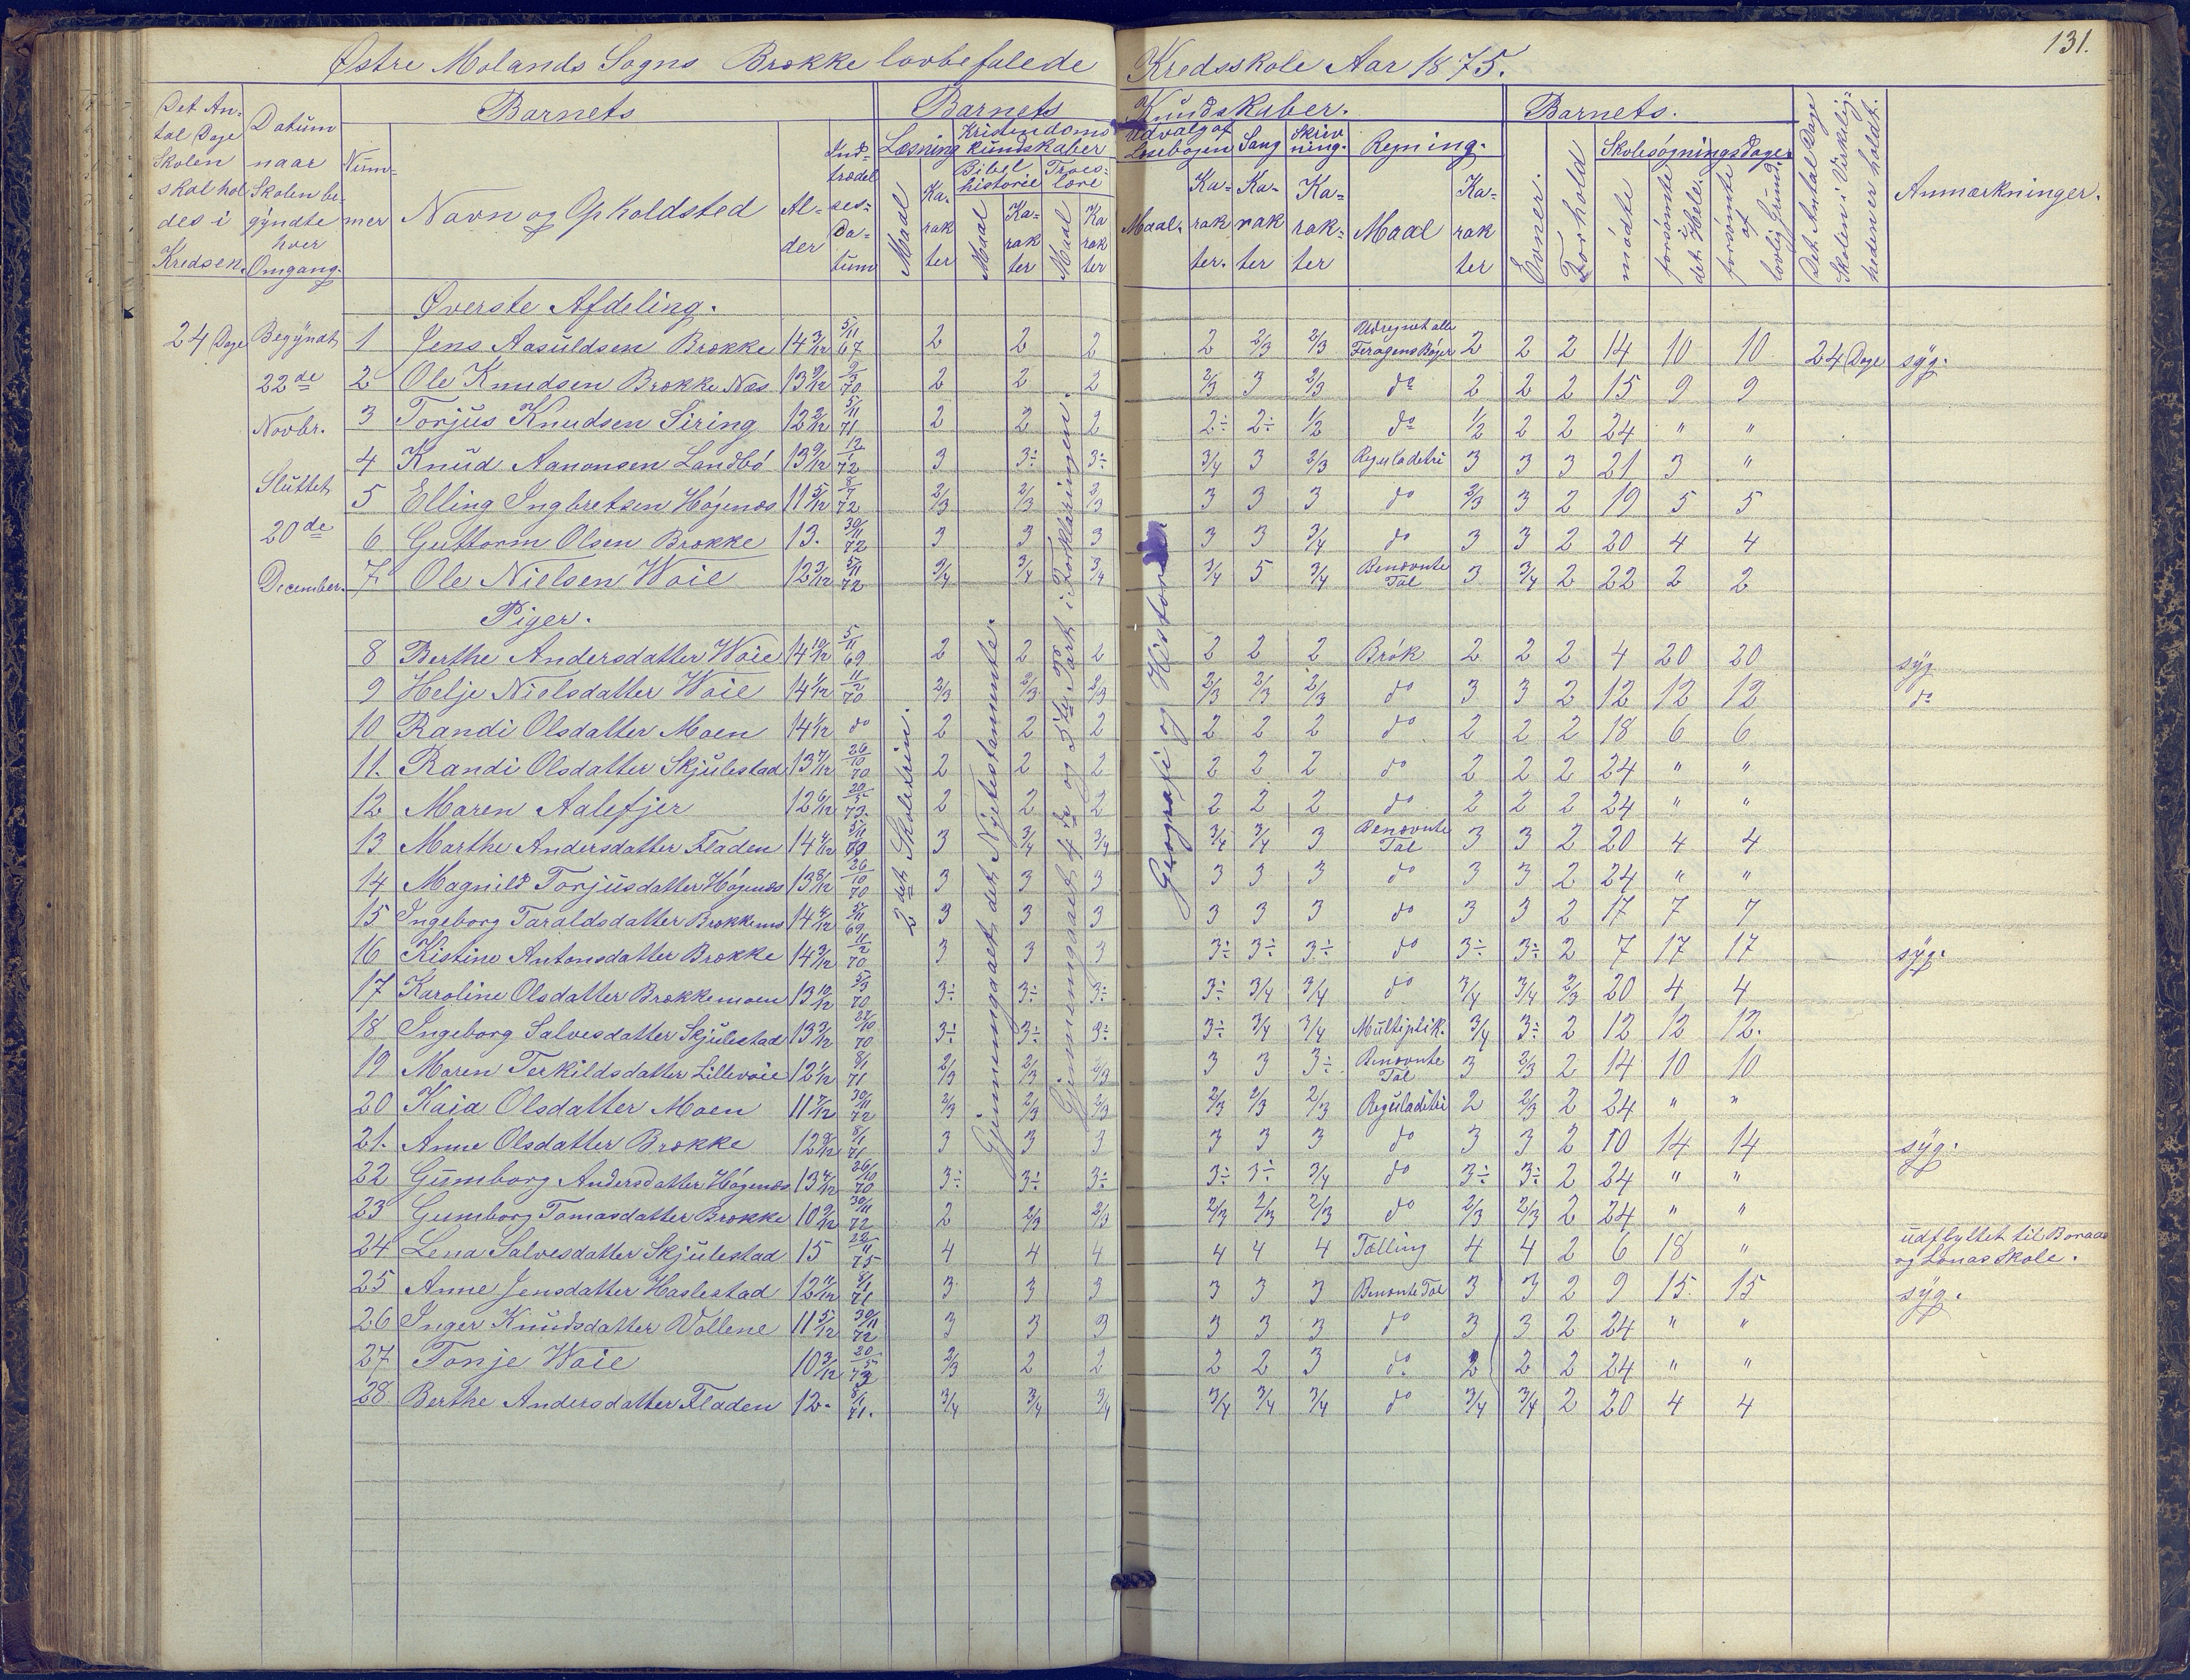 Østre Molands Sogns Brække lovbefalede Kredsskole Aar 1875. 131.
Det Antal Dage Skolen skal holdes i Kredsen. | Datum naar Skolen begyndte hver Omgang. | Barnets | Barnets Kundskaber. | Barnets. | Det Antal Dage Skolen i Virkeligheden er holdt. | Anmærkninger.
Nummer | Navn og Opholdsted | Alder | Indtrædelsesdatum | Læsning | Kristendomskundskaber | Udvalg af Læsebogen | Sang | Skrivning. | Regning. | Evner. | Forhold | Skolesøgningsdage
Bibelhistorie | Troeslære | mødte | forsømte i det Hele. | forsømte af lovlig Grund.
Maal | Karakter | Maal | Karakter | Maal | Karakter | Maal. | Karakter. | Karakter | Karakter | Maal | Karakter
Øverste Afdeling.
24 Dage
Begyndt 22de Novbr. Sluttet 20de December.
2det Skoletrin.
Gjennemgaaet det Nyetestamente.
Gjennemgaaet 4de og 5te Part i Forklaringen.
Geografi og Historie
1 Jens Aasuldsen Brække 14 3/12 5/11 67 2 2 2 2 2/3 2/3 Udregnet alle Feragens Bøger 2 2 2 14 10 10 24 Dage syg.
2 Ole Knudsen Brække Næs 13 9/12 9/3 70 2 2 2 2/3 3 2/3 do 2 2 2 15 9 9
3 Torjus Knudsen Siring 12 2/12 5/11 71 2 2 2 2÷ 2÷ 1/2 do 1/2 2 2 24 " "
4 Knud Aanonsen Landbö 13 9/12 12/1 72 3 3÷ 3÷ 3/4 3 2/3 Reguladetri 3 3 3 21 3 "
5 Elling Ingbretsen Högenæs 11 5/12 8/7 72 2/3 2/3 2/3 3 3 3 do 2/3 3 2 19 5 5
6 Guttorm Olsen Brække 13. 30/11 72 3 3 3 3 3 3/4 do 3 3 2 20 4 4
7 Ole Nielsen Woie 12 3/12 5/11 72 3/4 3/4 3/4 3/4 5 3/4 Benævnte Tal 3 3/4 2 22 2 2
Piger.
8 Berthe Andersdatter Woie 14 10/12 5/11 69 2 2 2 2 2 2 Brök 2 2 2 4 20 20 syg
9 Helje Nielsdatter Woie 14 1/12 11/2 70 2/3 2/3 2/3 2/3 2/3 2/3 do 3 3 2 12 12 12 do
10 Randi Olsdatter Moen 14 1/12 do 2 2 2 2 2 2 do 2 2 2 18 6 6
11. Randi Olsdatter Skjulestad 13 7/12 26/10 70 2 2 2 2 2 2 do 2 2 2 24 " "
12 Maren Aalefjer 12 6/12 20/5 73. 2 2 2 2 2 2 do 2 2 2 24 " "
13 Marthe Andersdatter Fladen 14 4/12 5/11 69 3 3/4 3/4 3/4 3/4 3 Benævnte Tal 3 3 2 20 4 4
14 Magnild Torjusdatter Högenæs 13 8/12 26/10 70 3 3 3 3 3 3 do 3 3 2 24 " "
15 Ingeborg Taraldsdatter 14 4/12 5/11 69 3 3 3 3 3 3 do 3 3 2 17 7 7
16 Kistine Antonsdatter Brække 14 3/12 11/2 70 3 3 3 3÷ 3÷ 3÷ do 3÷ 3÷ 2 7 17 17 syg.
17 Karoline Olsdatter Brækkemoen 13 10/12 5/3 70 3÷ 3÷ 3÷ 3÷ 3/4 3/4 do 3/4 3/4 2/3 20 4 4
18 Ingeborg Salvesdatter Skjulestad 13 3/12 27/10 70 3÷ 3÷ 3÷ 3÷ 3/4 3/4 Multiplik. 3/4 3÷ 2 12 12 12.
19 Maren Terkildsdatter Lillevoie 12 1/12 8/1 71 2/3 2/3 2/3 3 3 3÷ Benævnte Tal 3 2/3 2 14 10 10
20 Kaia Olsdatter Moen 11 7/12 30/11 72 2/3 2/3 2/3 2/3 2/3 2/3 Reguladetri 2 2/3 2 24 " "
21. Anne Olsdatter Brække 12 9/12 8/1 71 3 3 3 3 3 3 do 3 3 2 10 14 14 syg.
22 Gumborg Andersdatter Högenæs 13 4/12 26/10 70 3÷ 3÷ 3÷ 3÷ 3÷ 3/4 do 3÷ 3÷ 2 24 " "
23 Gumborg Tomasdatter Brække 10 9/12 30/11 72 2 2/3 2/3 2/3 2/3 2/3 do 2/3 2/3 2 24 " "
24 Lena Salvesdatter Skjulestad 15 22/11 75 4 4 4 4 4 4 Tælling 4 4 2 6 18 " udflyttet til Boraas og Lonas Skole.
25 Anne Jensdatter Haslestad 12 11/12 8/1 71 3 3 3 3 3 3 Benævnte Tal 3 3 2 9 15 15 syg.
26 Inger Knudsdatter Vollene 11 5/12 30/11 72 3 3 3 3 3 3 do 3 3 2 24 " "
27 Tonje Woie 10 3/12 20/5 73 2/3 2 2 2 2 3 do 2 2 2 24 " "
28 Berthe Andersdatter Fladen 12. 8/1 71. 3/4 3/4 3/4 3/4 3/4 3/4 do 3/4 3/4 2 20 4 4